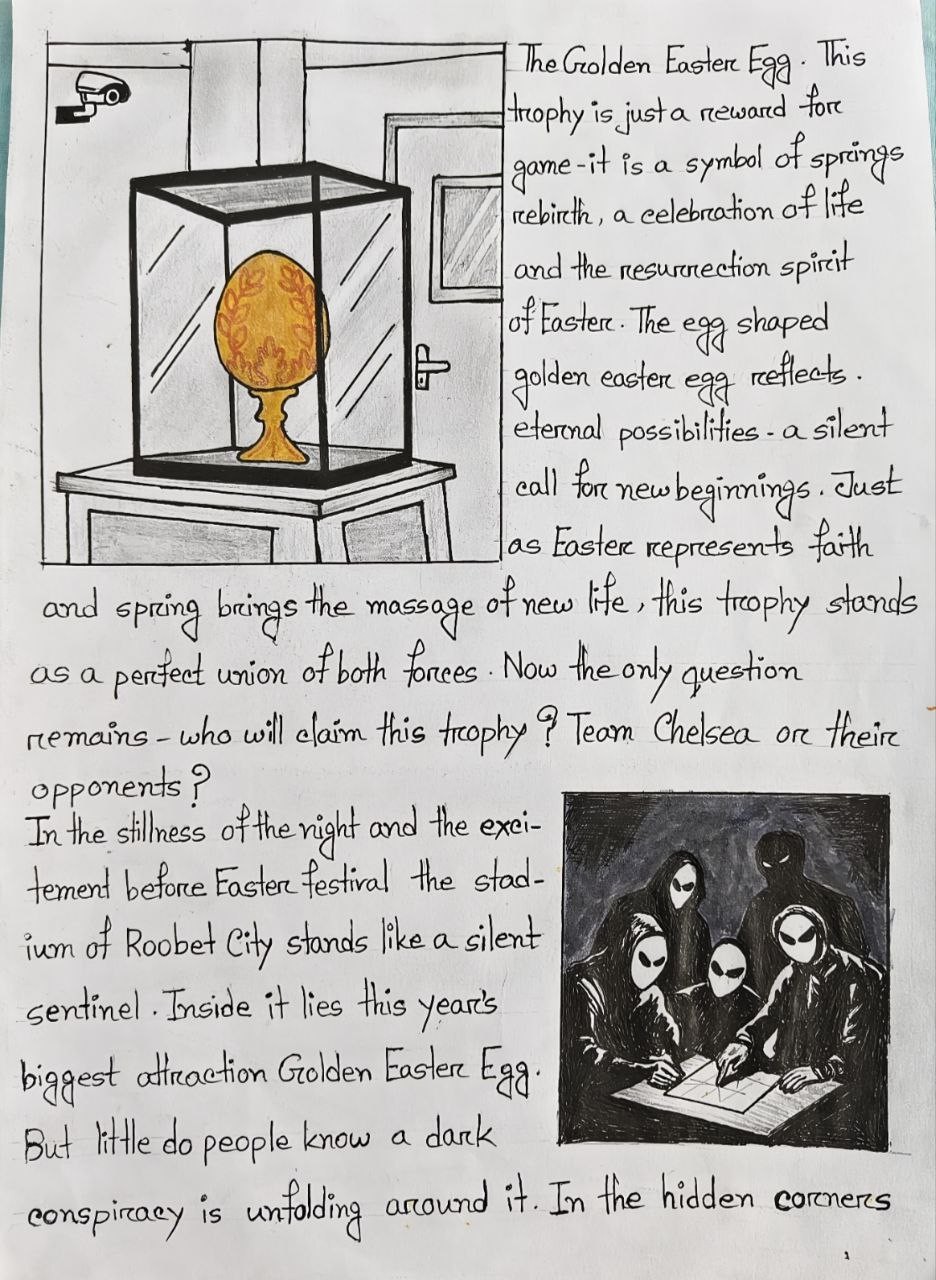 The Golden Easter Egg. This
trophy is just a reward for
game-it is a symbol of springs
rebirth, a celebration of life
and the resurrection spirit
of Easter. The egg shaped
golden easter egg reflects.
eternal possibilities - a silent
call for new beginnings. Just
as Easter represents faith
and spring brings the massage of new life, this trophy stands
as a perfect union of both forces. Now the only question
remains - who will claim this trophy? Team Chelsea or their
opponents?
In the stillness of the night and the exci-
tement before Easter festival the stad-
ium of Roobet City stands like a silent
sentinel. Inside it lies this year's
biggest attraction Golden Easter Egg.
But little do people know a dark
conspiracy is unfolding around it. In the hidden corners
1